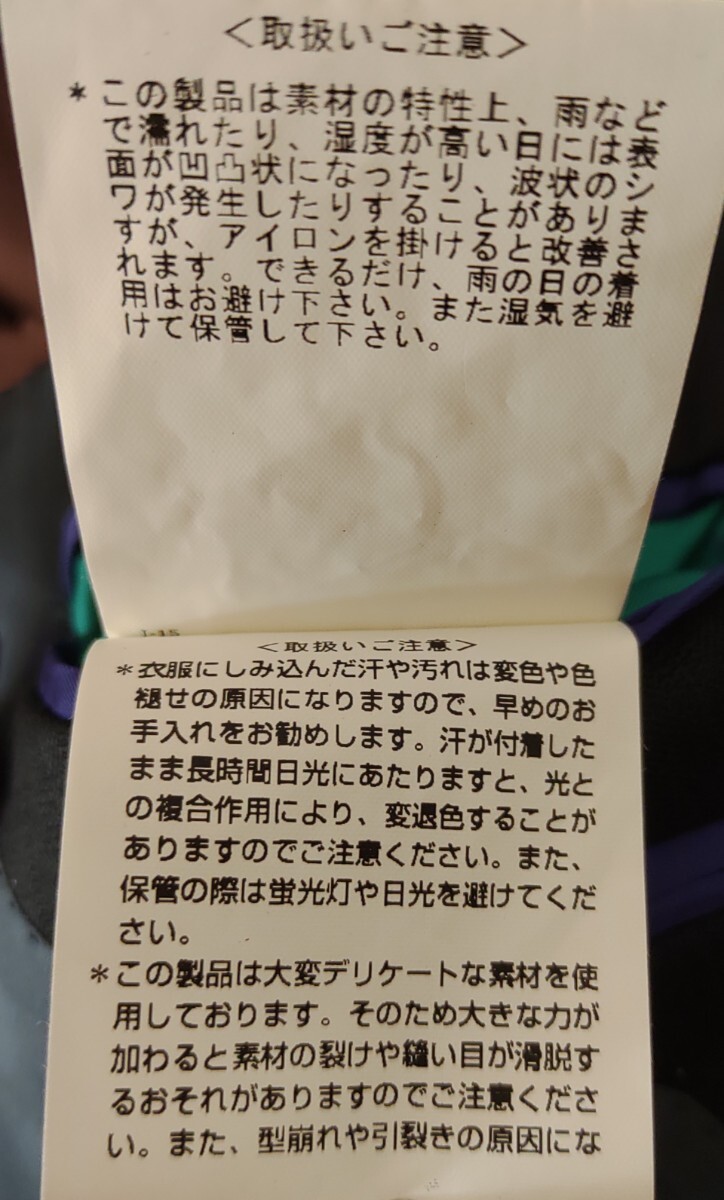 ＜取扱いご注意＞
＊この製品は素材の特性上、雨など
で濡れたり、湿度が高い日には表
面が凹凸状になったり、波状のシ
ワが発生したりすることがありま
すが、アイロンを掛けると改善さ
れます。できるだけ、雨の日の着
用はお避け下さい。また湿気を避
けて保管して下さい。
＜取扱いご注意＞
＊衣服にしみ込んだ汗や汚れは変色や色
褪せの原因になりますので、早めのお
手入れをお勧めします。汗が付着した
まま長時間日光にあたりますと、光と
の複合作用により、変退色することが
ありますのでご注意ください。また、
保管の際は蛍光灯や日光を避けてくだ
さい。
＊この製品は大変デリケートな素材を使
用しております。そのため大きな力が
加わると素材の裂けや縫い目が滑脱す
るおそれがありますのでご注意くださ
い。また、型崩れや引裂きの原因にな